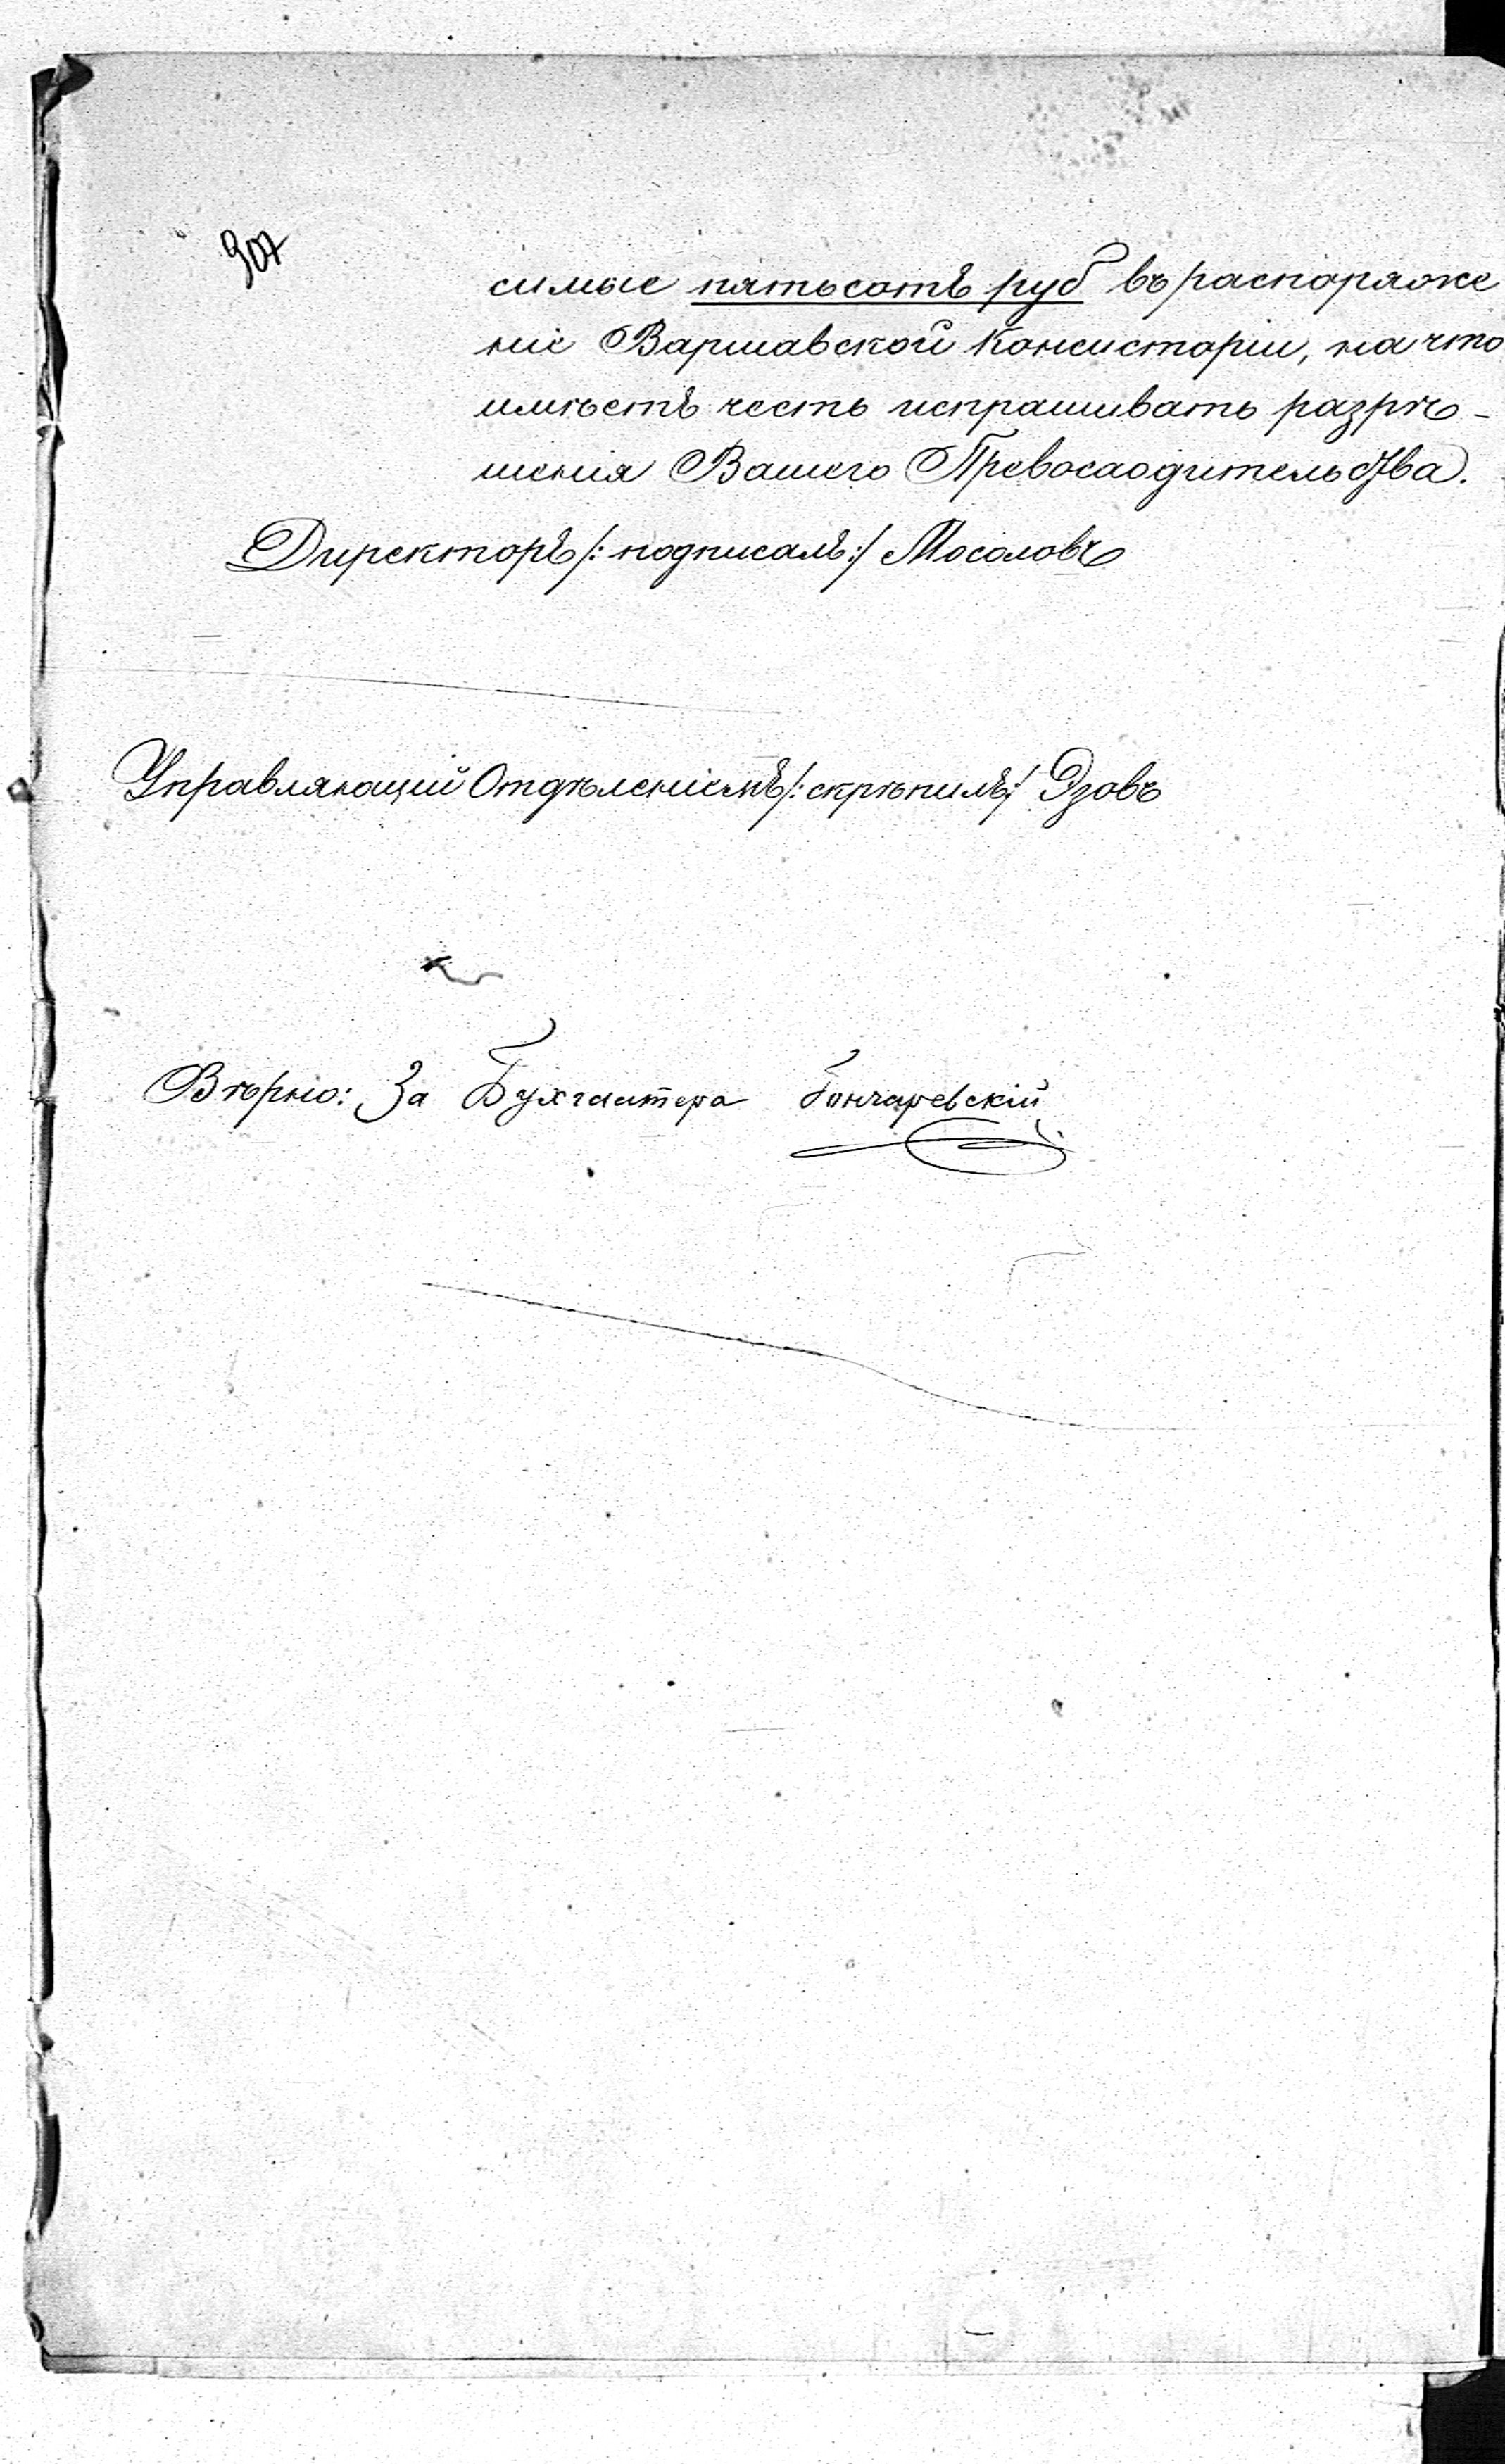 907
симые пятьсотъ руб въ распоряже
ніе Варшавской Консисторіи, на что
имѣетъ честь испрашивать разрѣ-
шенія Вашего Превосходительства.
Директоръ /: подписалъ :/ Мосоловъ
Управляющій Отдѣленіемъ /: скрѣпилъ :/ Эзовъ
Вѣрно: За Бухгалтера Гончаревскій